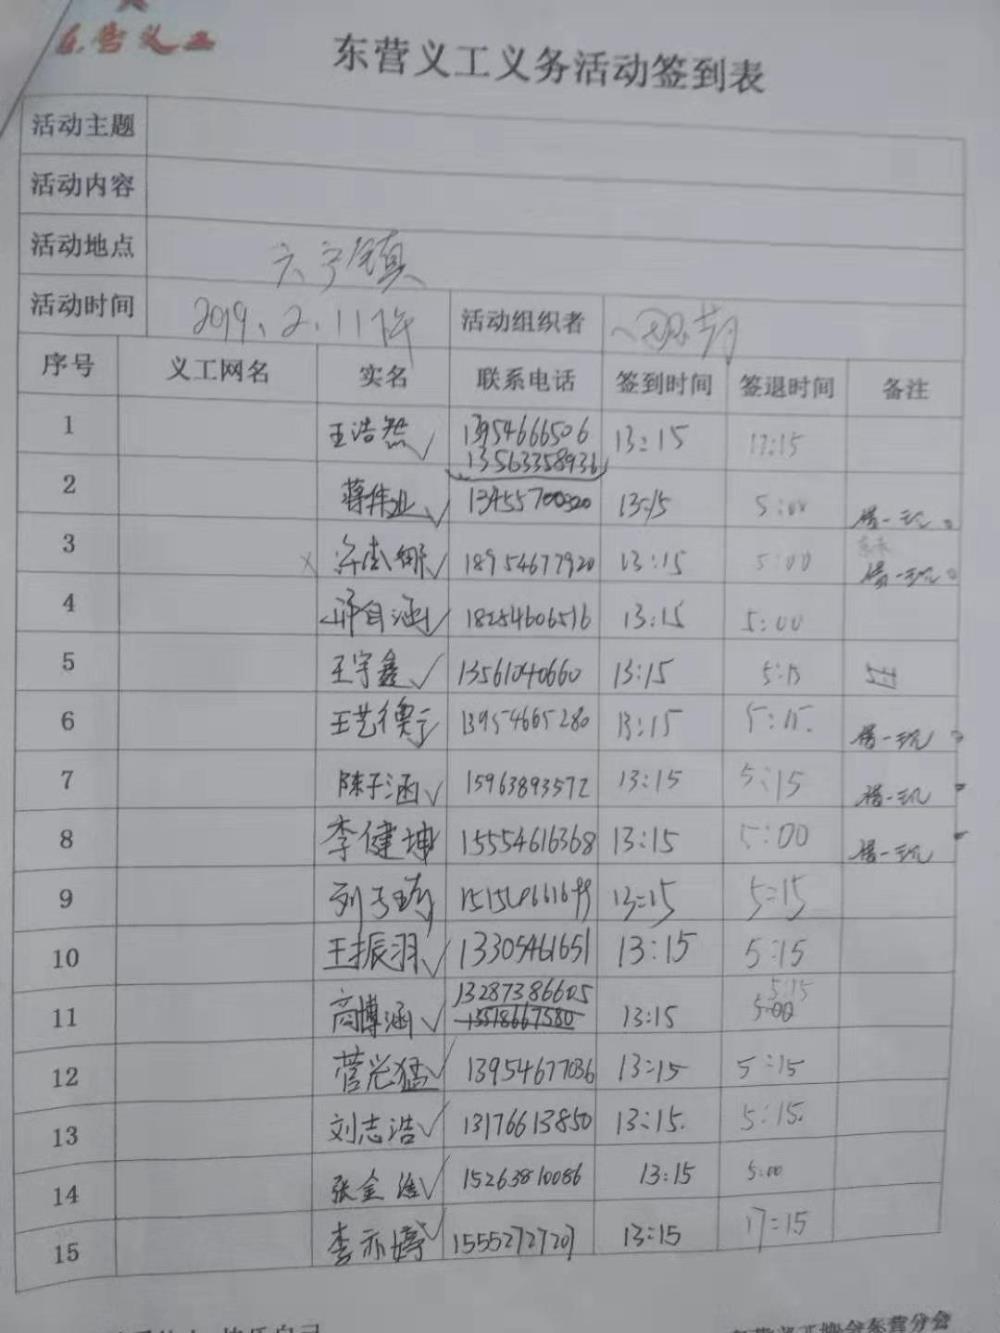 东营义工
东营义工义务活动签到表
活动主题
活动内容
活动地点 六宁镇
活动时间 2019.2.11下午 活动组织者
序号 义工网名 实名 联系电话 签到时间 签退时间 备注
1 王浩然✓ 13954666506 13:15 17:15
13563358936
2 蒋伟业✓ 13455700520 13:15 5:00
3 × ✓ 18954677920 13:15 5:00
4 ✓ 18254606516 13:15 5:00
5 王宇鑫✓ 13561040660 13:15 5:15
6 王艺德 13954665280 13:15 5:15.
7 陈子涵✓ 15963893572 13:15 5:15
8 李健坤 15554616368 13:15 5:00
9 13:15 5:15
10 王振羽✓ 13305461651 13:15 5:15
11 高博涵✓ 13287386605 13:15 5:15
15518667580 5:00
12 菅光猛✓ 13954677036 13:15 5:15
13 刘志浩✓ 13176613850 13:15. 5:15.
14 张金 ✓ 15263810086 13:15 5:00
15 李亦婷 15552727207 13:15 17:15